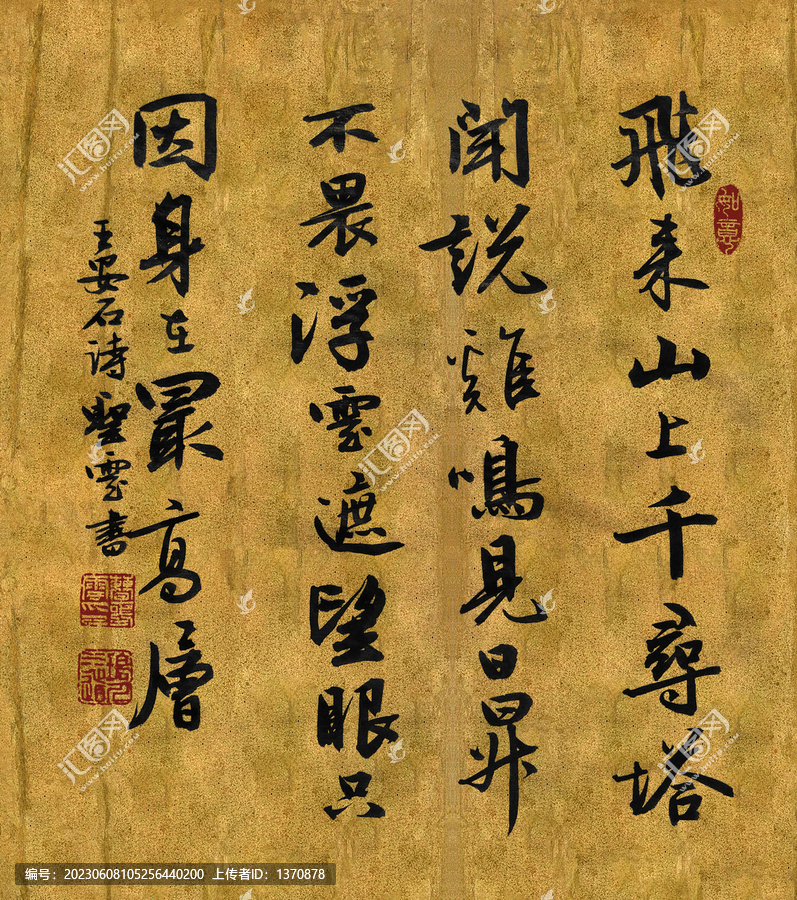 飛来山上千尋塔
聞說雞鳴見日昇
不畏浮雲遮望眼只
因身在最高層
王安石詩聖雲書
如意
汇图网
编号：20230608105256440200 上传者ID：1370878